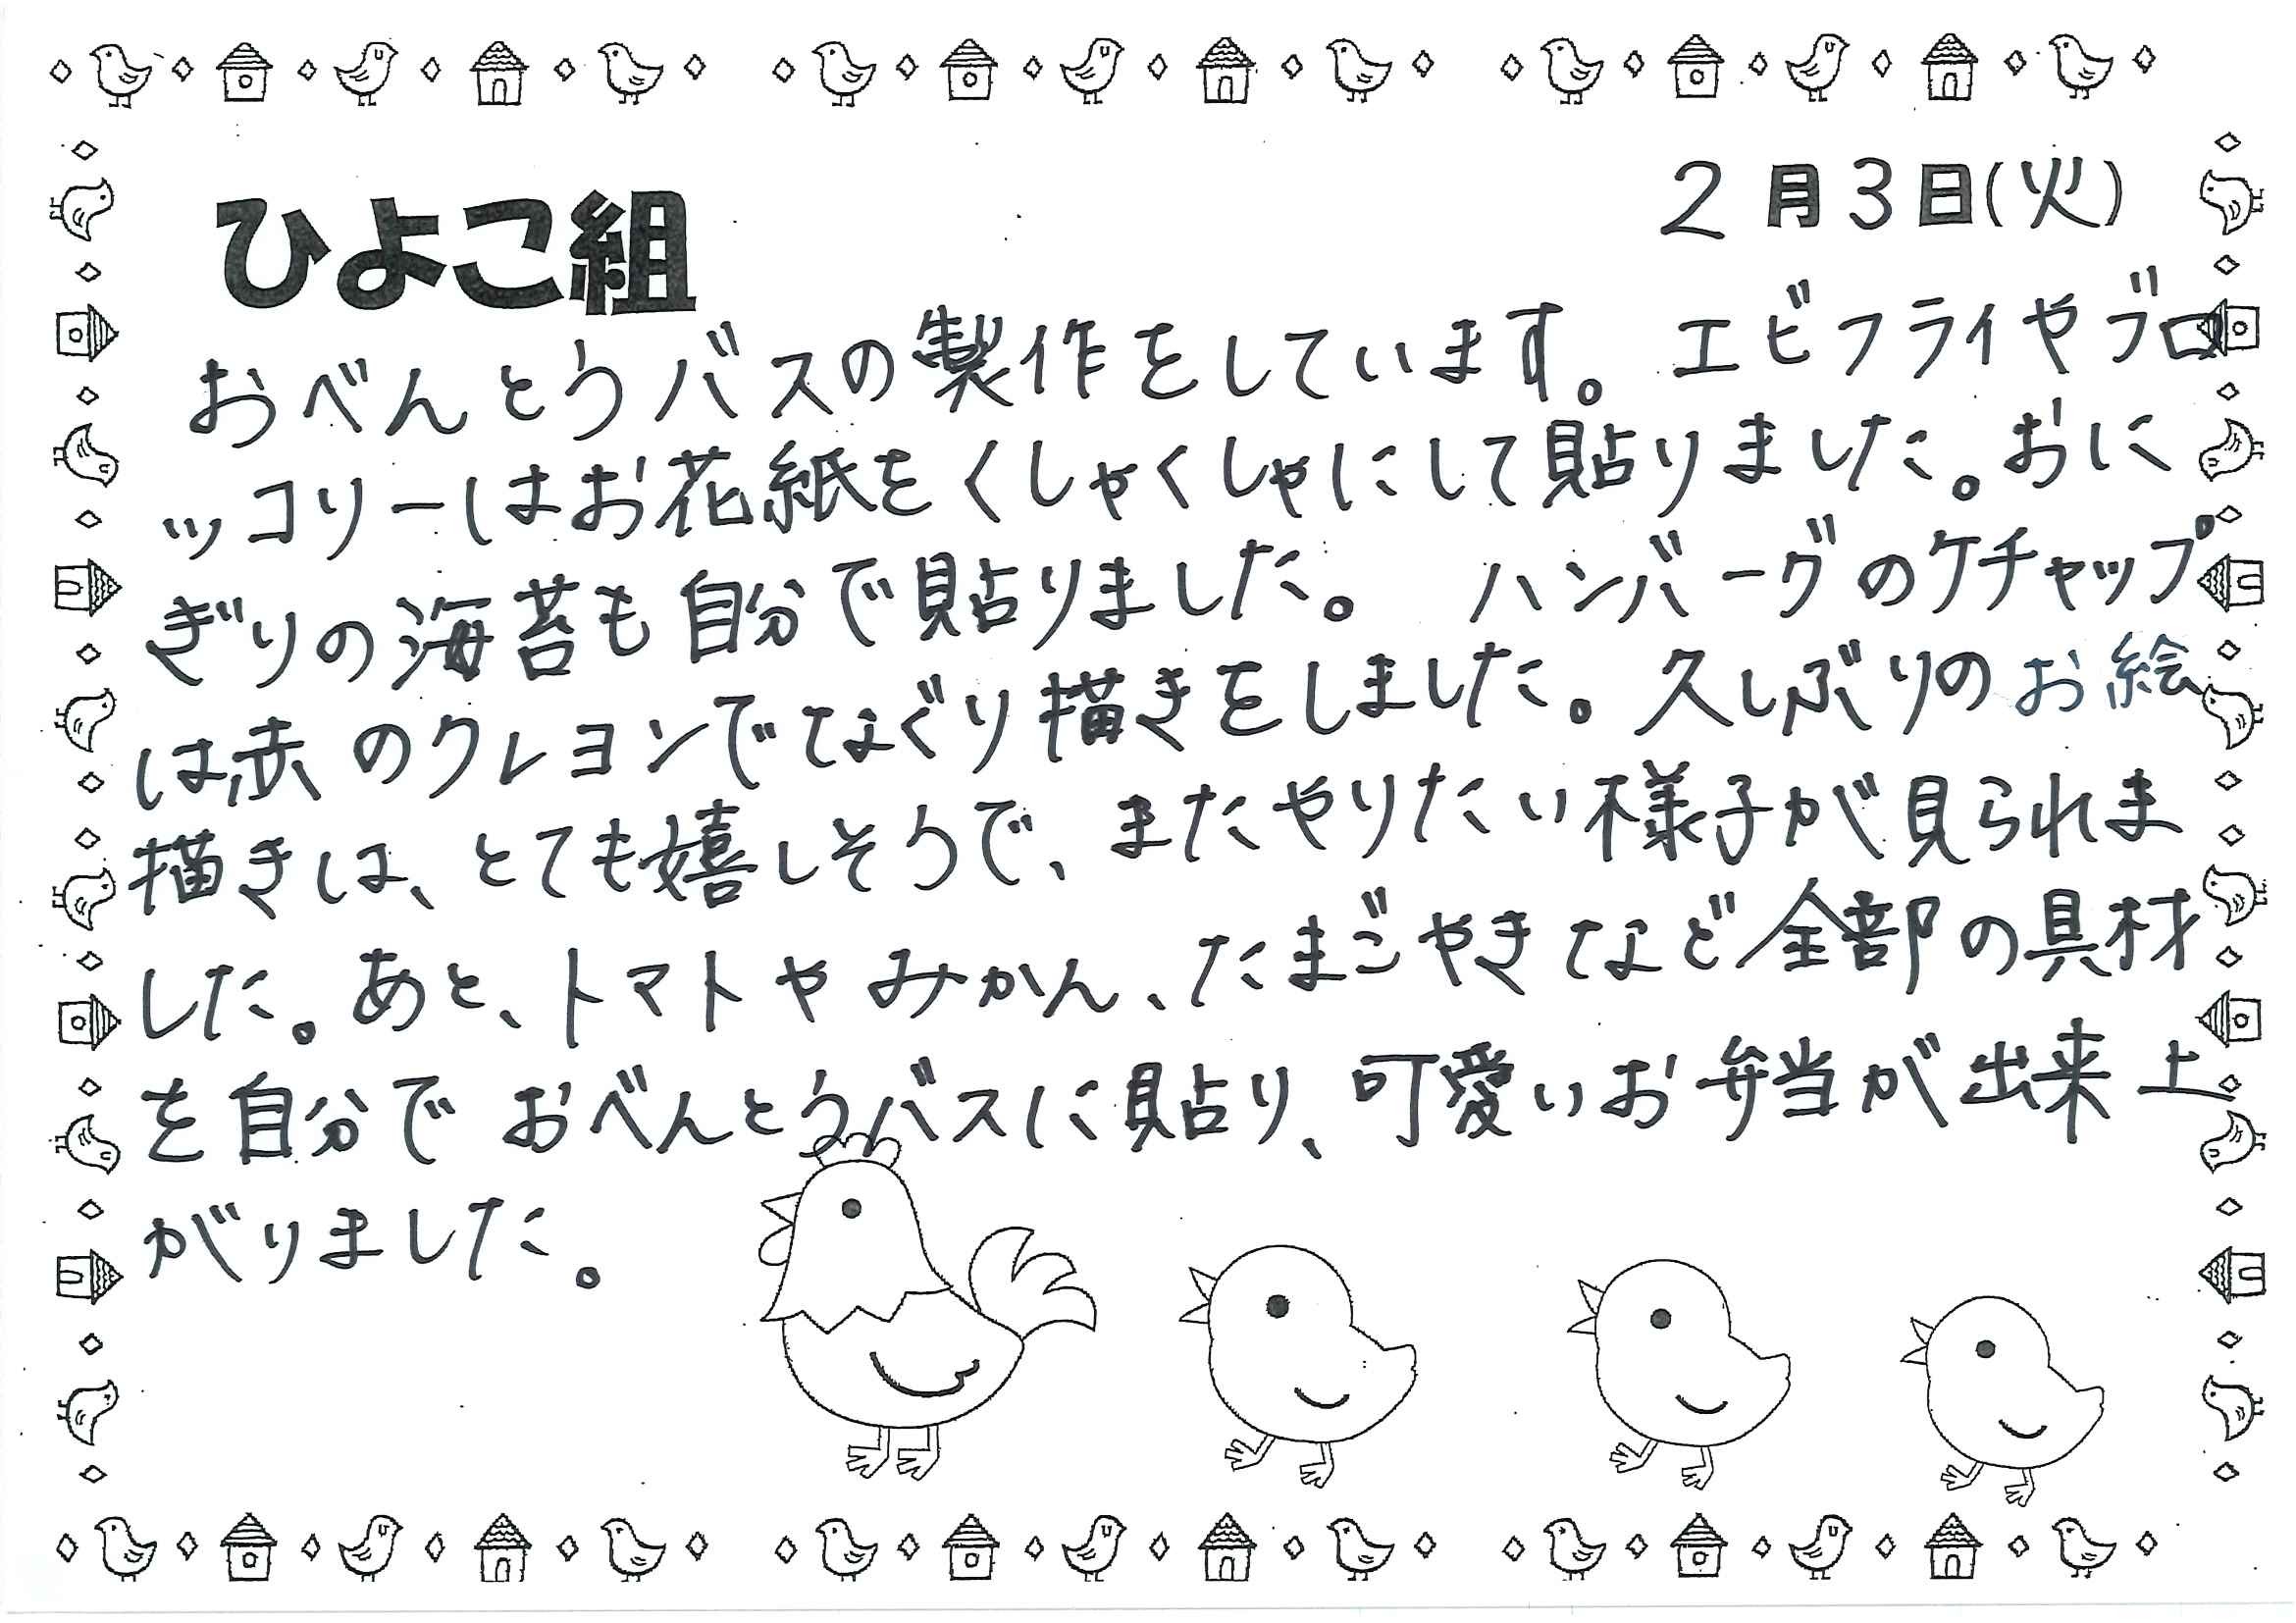 ひよこ組
2月3日(火)
おべんとうバスの製作をしています。エビフライやブロ
ッコリーはお花紙をくしゃくしゃにして貼りました。おに
ぎりの海苔も自分で貼りました。ハンバーグのケチャップ
は赤のクレヨンでなぐり描きをしました。久しぶりのお絵
描きは、とても嬉しそうで、またやりたい様子が見られま
した。あと、トマトやみかん、たまごやきなど全部の具材
を自分でおべんとうバスに貼り、可愛いお弁当が出来上
がりました。